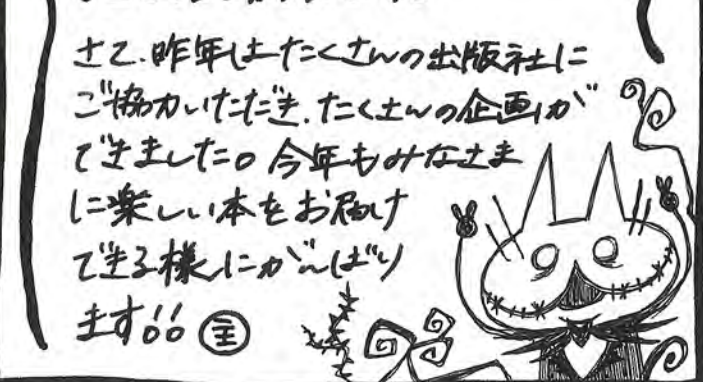 さて、昨年はたくさんの出版社に
ご協力いただき、たくさんの企画が
できました。今年もみなさま
に楽しい本をお届け
できる様にがんばり
ます!!